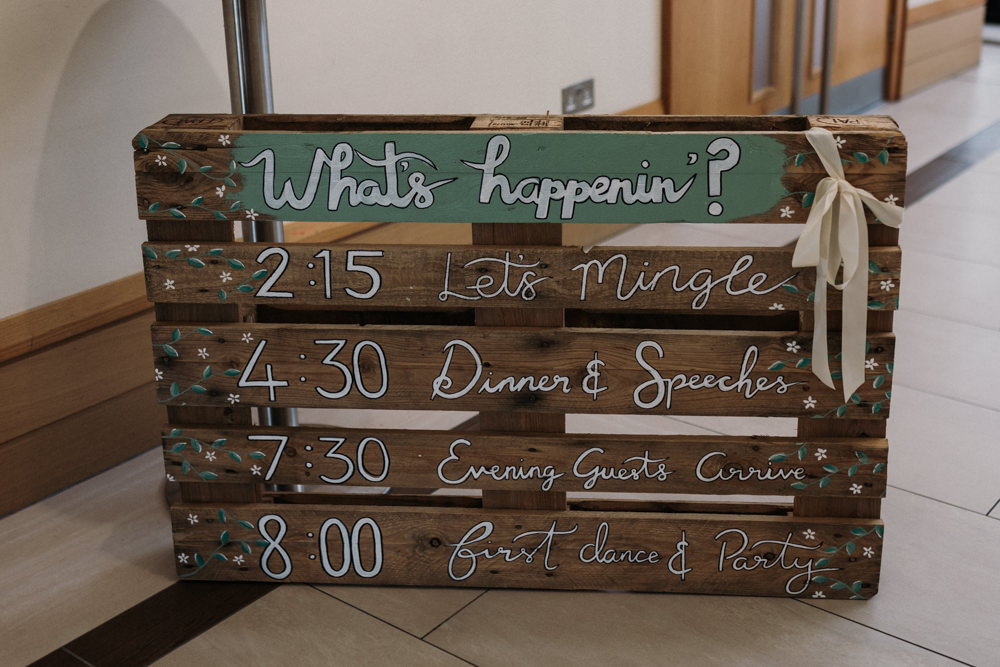 What's happenin'?
2:15 Let's Mingle
4:30 Dinner & Speeches
7:30 Evening Guests arrive
8:00 first dance & Party